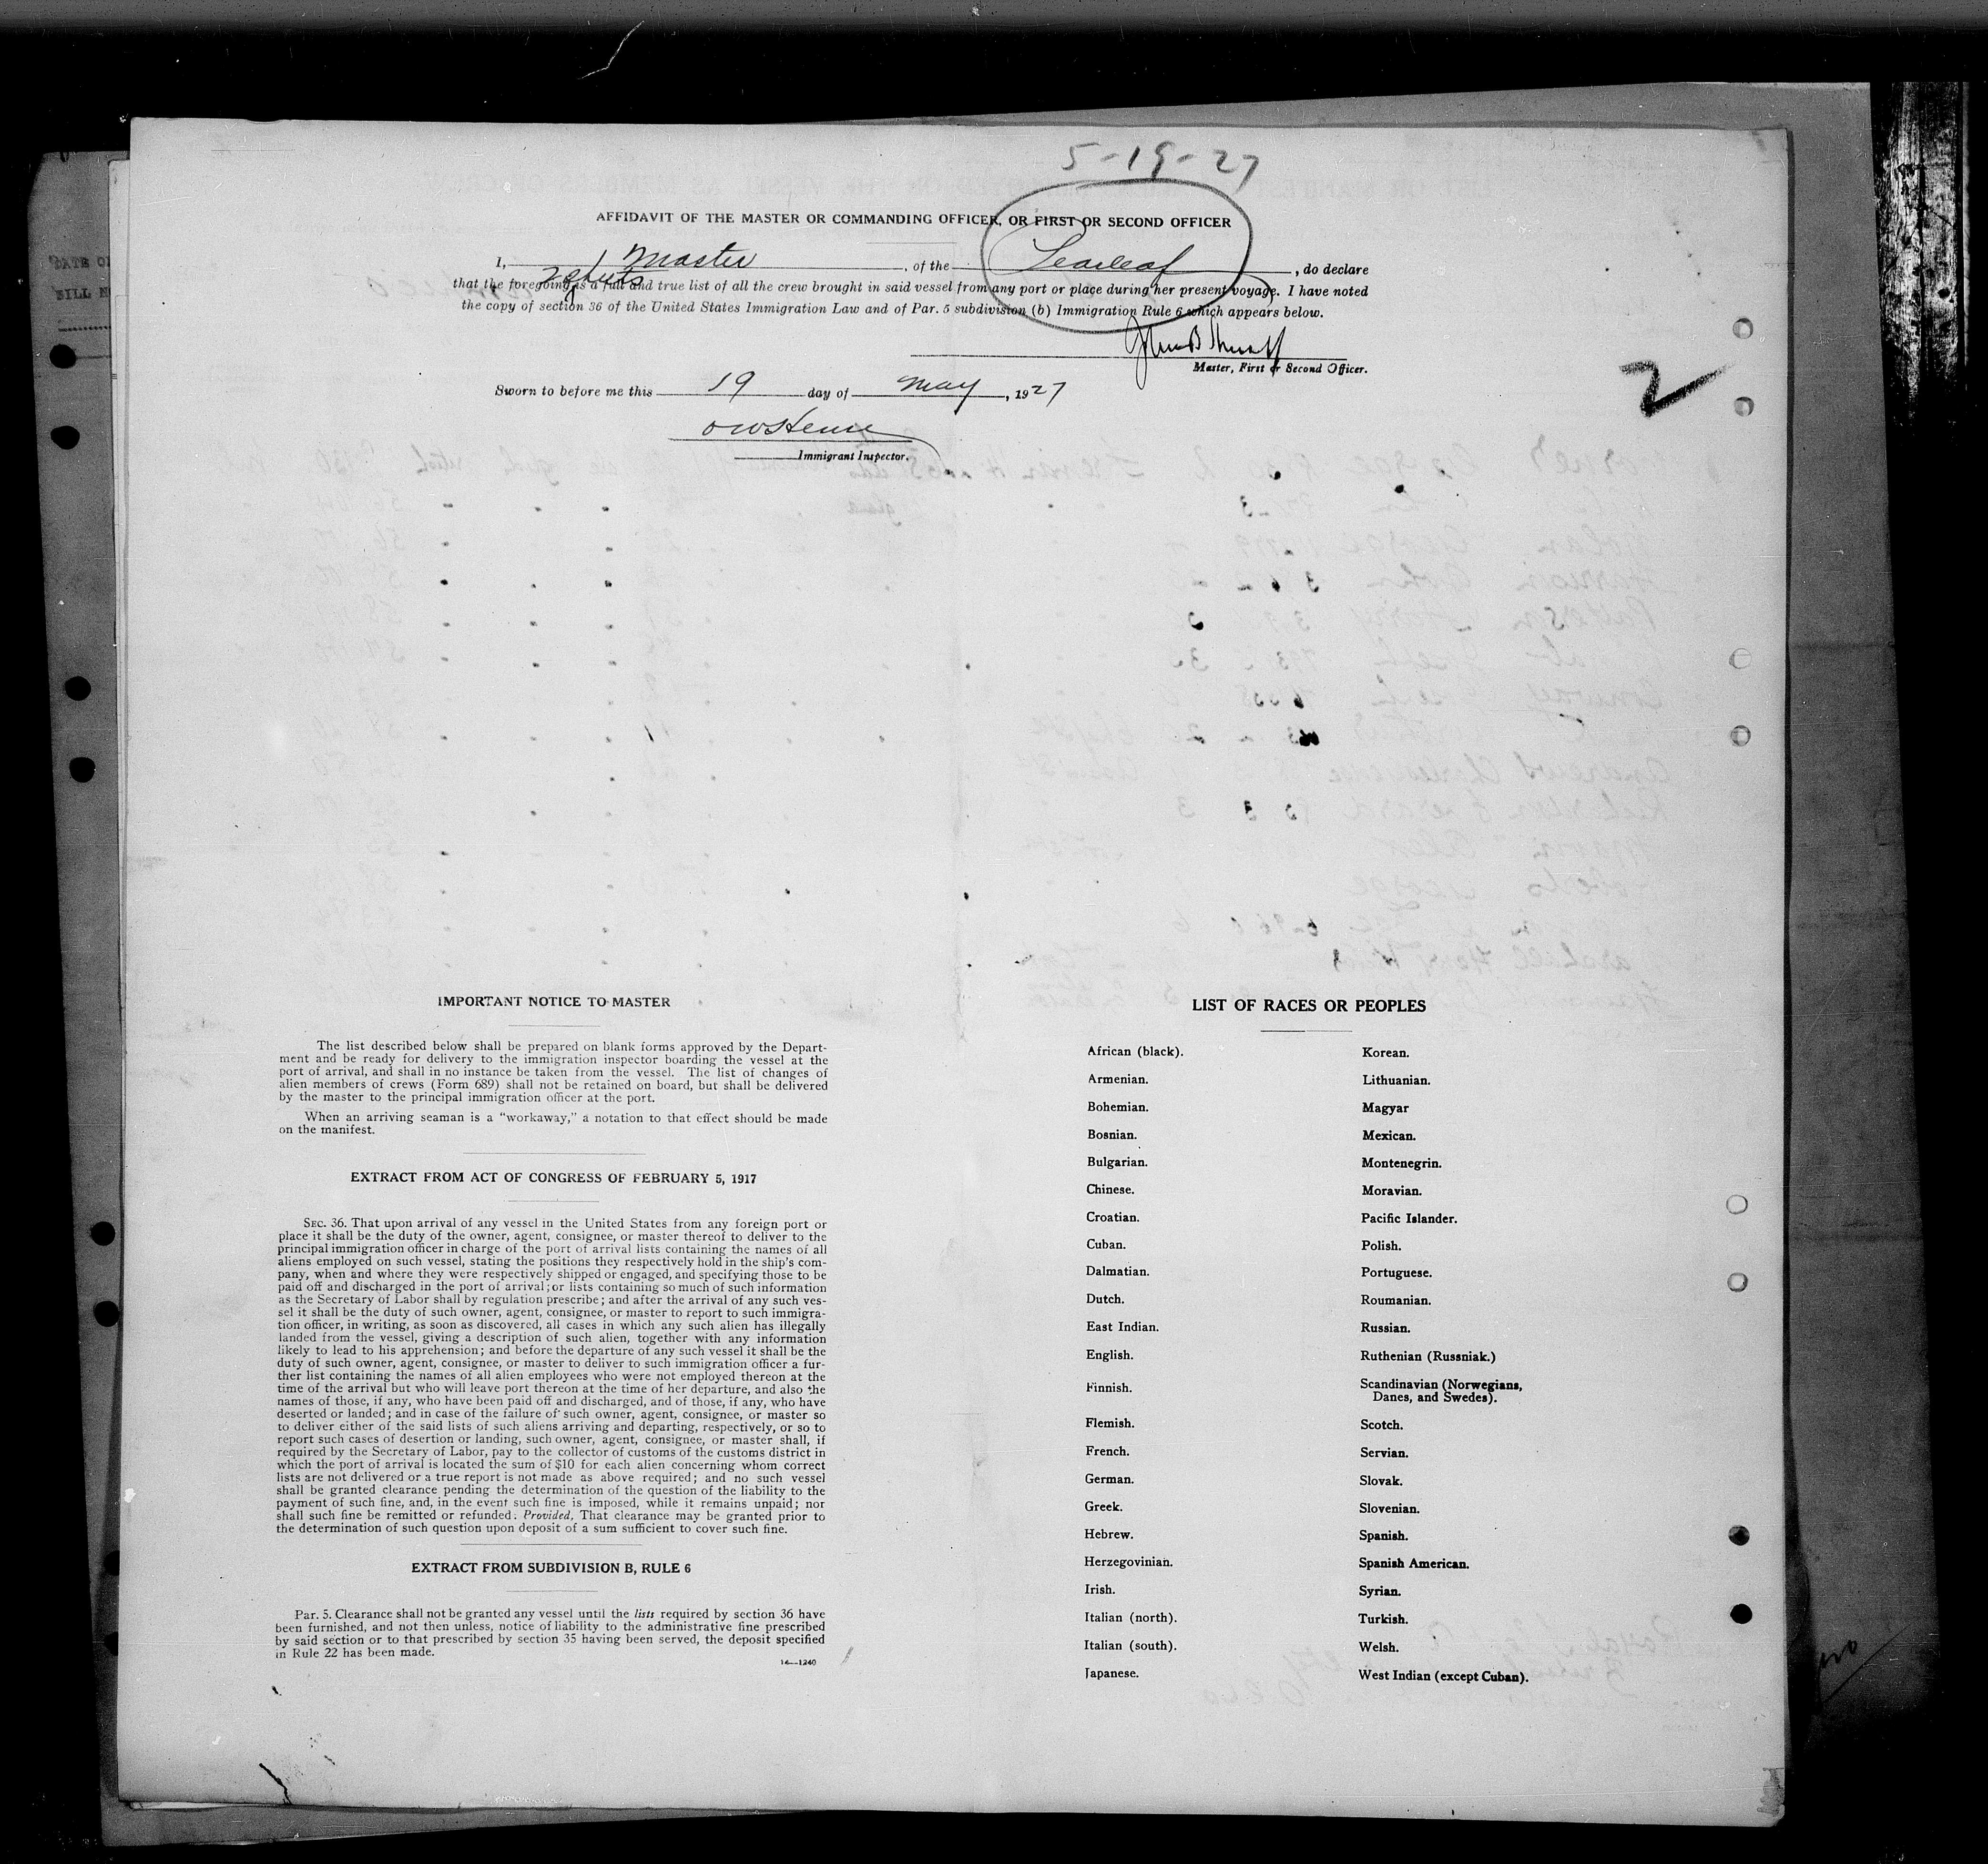 5-19-27
AFFIDAVIT OF THE MASTER OR COMMANDING OFFICER, OR FIRST OR SECOND OFFICER
I, Master, of the Pearleaf, do declare
2 sheets
that the foregoing is a full and true list of all the crew brought in said vessel from any port or place during her present voyage. I have noted
the copy of section 36 of the United States Immigration Law and of Par. 5 subdivision (b) Immigration Rule 6 which appears below.
John B
Master, First or Second Officer.
2
Sworn to before me this 19 day of May, 1927
Immigrant Inspector.
IMPORTANT NOTICE TO MASTER
The list described below shall be prepared on blank forms approved by the Depart-
ment and be ready for delivery to the immigration inspector boarding the vessel at the
port of arrival, and shall in no instance be taken from the vessel. The list of changes of
alien members of crews (Form 689) shall not be retained on board, but shall be delivered
by the master to the principal immigration officer at the port.
When an arriving seaman is a "workaway," a notation to that effect should be made
on the manifest.
EXTRACT FROM ACT OF CONGRESS OF FEBRUARY 5, 1917
SEC. 36. That upon arrival of any vessel in the United States from any foreign port or
place it shall be the duty of the owner, agent, consignee, or master thereof to deliver to the
principal immigration officer in charge of the port of arrival lists containing the names of all
aliens employed on such vessel, stating the positions they respectively hold in the ship's com-
pany, when and where they were respectively shipped or engaged, and specifying those to be
paid off and discharged in the port of arrival; or lists containing so much of such information
as the Secretary of Labor shall by regulation prescribe; and after the arrival of any such ves-
sel it shall be the duty of such owner, agent, consignee, or master to report to such immigra-
tion officer, in writing, as soon as discovered, all cases in which any such alien has illegally
landed from the vessel, giving a description of such alien, together with any information
likely to lead to his apprehension; and before the departure of any such vessel it shall be the
duty of such owner, agent, consignee, or master to deliver to such immigration officer a fur-
ther list containing the names of all alien employees who were not employed thereon at the
time of the arrival but who will leave port thereon at the time of her departure, and also the
names of those, if any, who have been paid off and discharged, and of those, if any, who have
deserted or landed; and in case of the failure of such owner, agent, consignee, or master so
to deliver either of the said lists of such aliens arriving and departing, respectively, or so to
report such cases of desertion or landing, such owner, agent, consignee, or master shall, if
required by the Secretary of Labor, pay to the collector of customs of the customs district in
which the port of arrival is located the sum of $10 for each alien concerning whom correct
lists are not delivered or a true report is not made as above required; and no such vessel
shall be granted clearance pending the determination of the question of the liability to the
payment of such fine, and, in the event such fine is imposed, while it remains unpaid; nor
shall such fine be remitted or refunded: Provided, That clearance may be granted prior to
the determination of such question upon deposit of a sum sufficient to cover such fine.
EXTRACT FROM SUBDIVISION B, RULE 6
Par. 5. Clearance shall not be granted any vessel until the lists required by section 36 have
been furnished, and not then unless, notice of liability to the administrative fine prescribed
by said section or to that prescribed by section 35 having been served, the deposit specified
in Rule 22 has been made.
14—1240
LIST OF RACES OR PEOPLES
African (black).
Armenian.
Bohemian.
Bosnian.
Bulgarian.
Chinese.
Croatian.
Cuban.
Dalmatian.
Dutch.
East Indian.
English.
Finnish.
Flemish.
French.
German.
Greek.
Hebrew.
Herzegovinian.
Irish.
Italian (north).
Italian (south).
Japanese.
Korean.
Lithuanian.
Magyar
Mexican.
Montenegrin.
Moravian.
Pacific Islander.
Polish.
Portuguese.
Roumanian.
Russian.
Ruthenian (Russniak.)
Scandinavian (Norwegians,
Danes, and Swedes).
Scotch.
Servian.
Slovak.
Slovenian.
Spanish.
Spanish American.
Syrian.
Turkish.
Welsh.
West Indian (except Cuban).